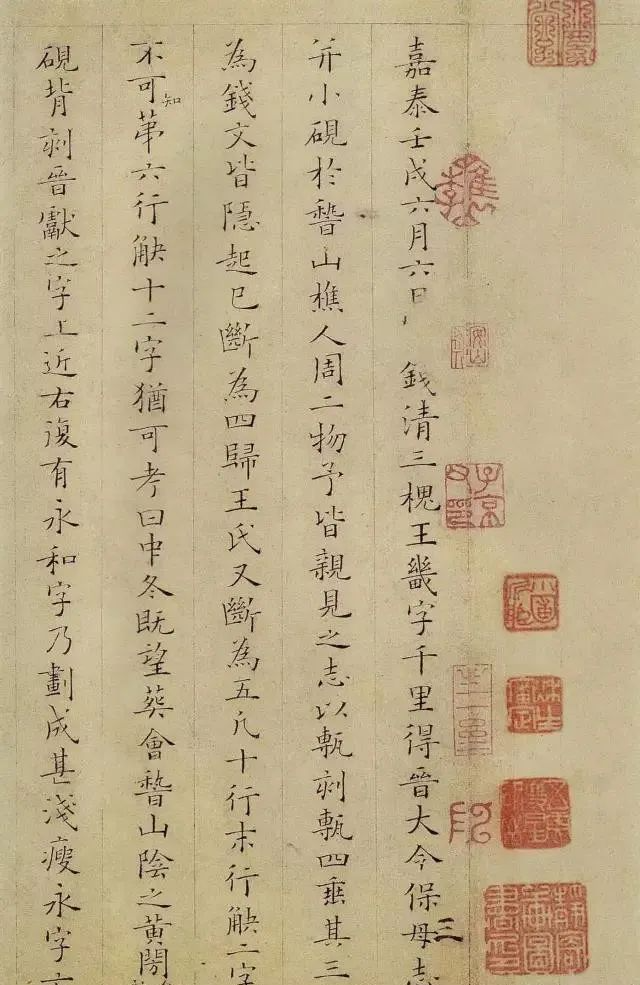 嘉泰壬戌六月六日錢清三槐王畿字千里得晉大令保母志三
并小硯於稽山樵人周二物予皆親見之志以甎刻甎四垂其三
為錢文皆隱起已斷為四歸王氏又斷為五凡十行末行缺二字
不可知第六行缺十二字猶可考曰中冬既望葬會稽山陰之黃閍
硯背刻晉獻之字上近右復有永和字乃劃成甚淺瘦永字亡